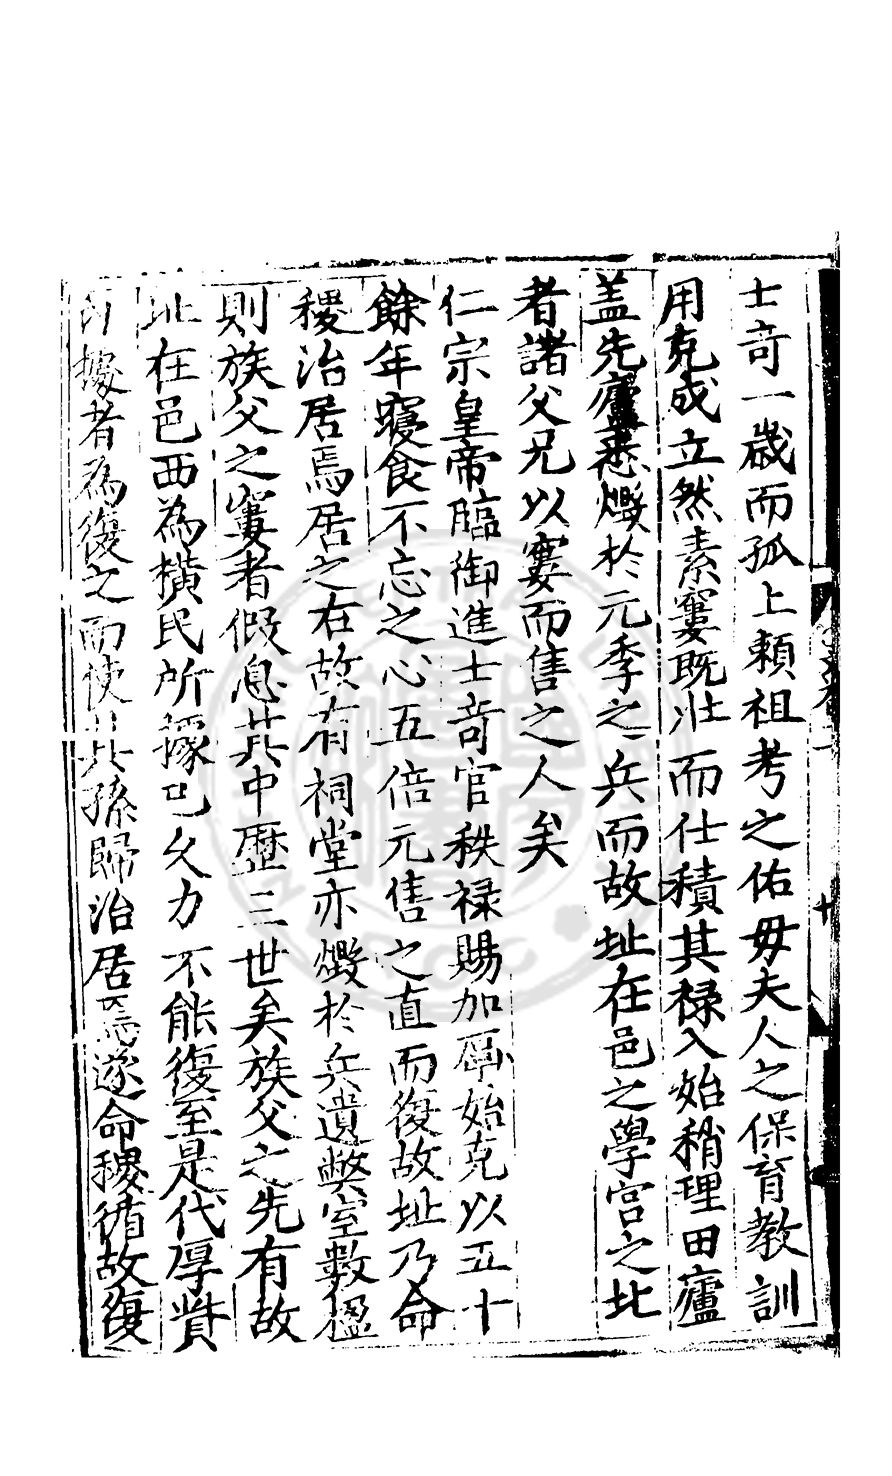 士竒一歲而孤上賴祖考之佑毋夫人之保育教訓
用克成立然素窶既壯而仕積其祿入始稍理田廬
盖先廬悉燬於元季之兵而故址在邑之學宫之北
者諸父兄以窶而售之人矣
仁宗皇帝臨御進士竒官秩禄賜加厚始克以五十
餘年寢食不忘之心五倍元售之直而復故址乃命
稷治居焉居之右故有祠堂亦燬於兵遺弊室數楹
則族父之窶者假息其中歷三世矣族父之先有故
址在邑西為橫民所據已久力不能復至是代厚貲
據者為復之而使其孫歸治居焉遂命稷循故復